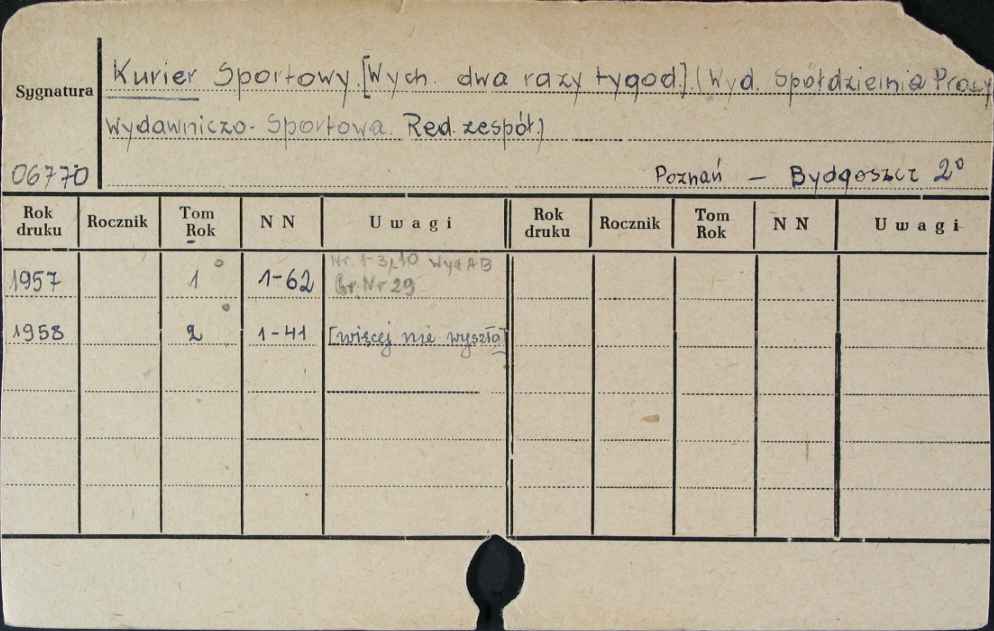 Kurier Sportowy. [Wych. dwa razy tygod.]. (Wyd. Spółdzielnia Pracy
Sygnatura
Wydawniczo-Sportowa. Red. zespół)
06770
Poznań — Bydgoszcz 2°
Rok druku Rocznik Tom Rok NN Uwagi Rok druku Rocznik Tom Rok NN Uwagi
Nr. 1-3, 10 Wyd AB
1957 1 1-62 Br. Nr 29
1958 2 1-41 [więcej nie wyszło]